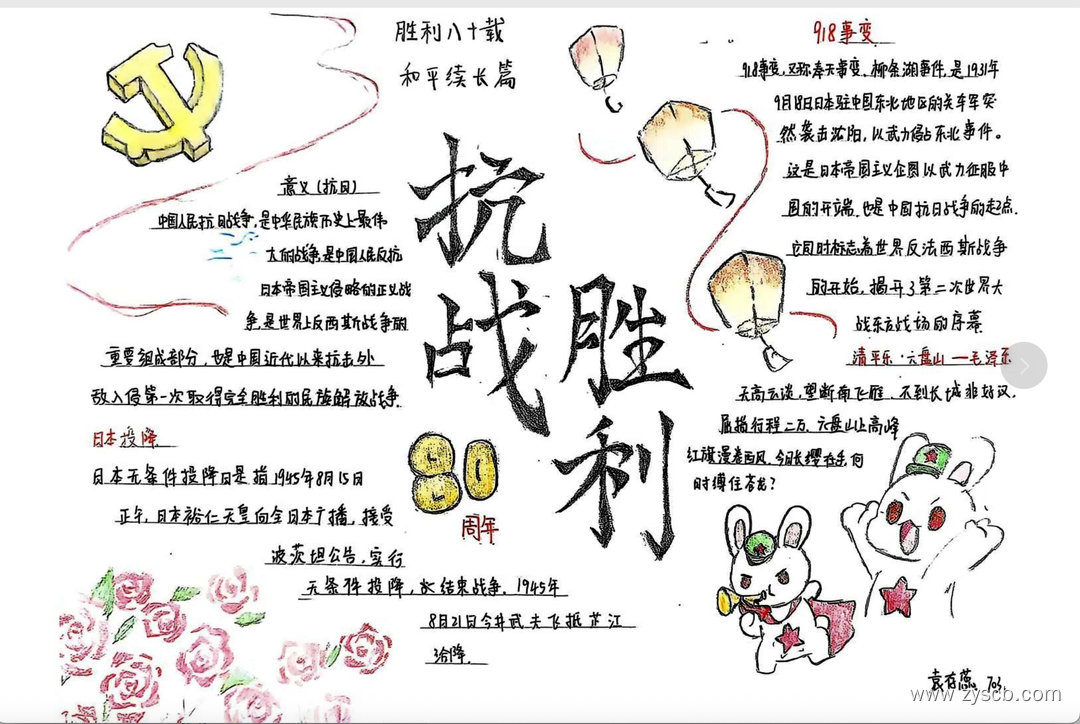 胜利八十载
和平续长篇
抗战胜利
80
周年
意义(抗日)
中国人民抗日战争,是中华民族历史上最伟
大的战争是中国人民反抗
日本帝国主义侵略的正义战
争,是世界上反西斯战争的
重要组成部分,也是中国近代以来抗击外
敌入侵第一次取得完全胜利的民族解放战争
日本投降
日本无条件投降日是指1945年8月15日
正午,日本裕仁天皇向全日本广播,接受
波茨坦公告,实行
无条件投降,结束战争,1945年
8月21日今井武夫飞抵芷江
洽降.
918事变
918事变,又称奉天事变、柳条湖事件,是1931年
9月18日日本驻中国东北地区的关东军突
然袭击沈阳,以武力侵占东北事件。
这是日本帝国主义企图以武力征服中
国的开端,也是中国抗日战争的起点.
它同时标志着世界反法西斯战争
的开始,揭开了第二次世界大
战东方战场的序幕
清平乐·六盘山——毛泽东
天高云淡,望断南飞雁、不到长城非好汉,
屈指行程二万、六盘山上高峰
红旗漫卷西风,今日长缨在手,何
时缚住苍龙?
703
www.zyscb.com